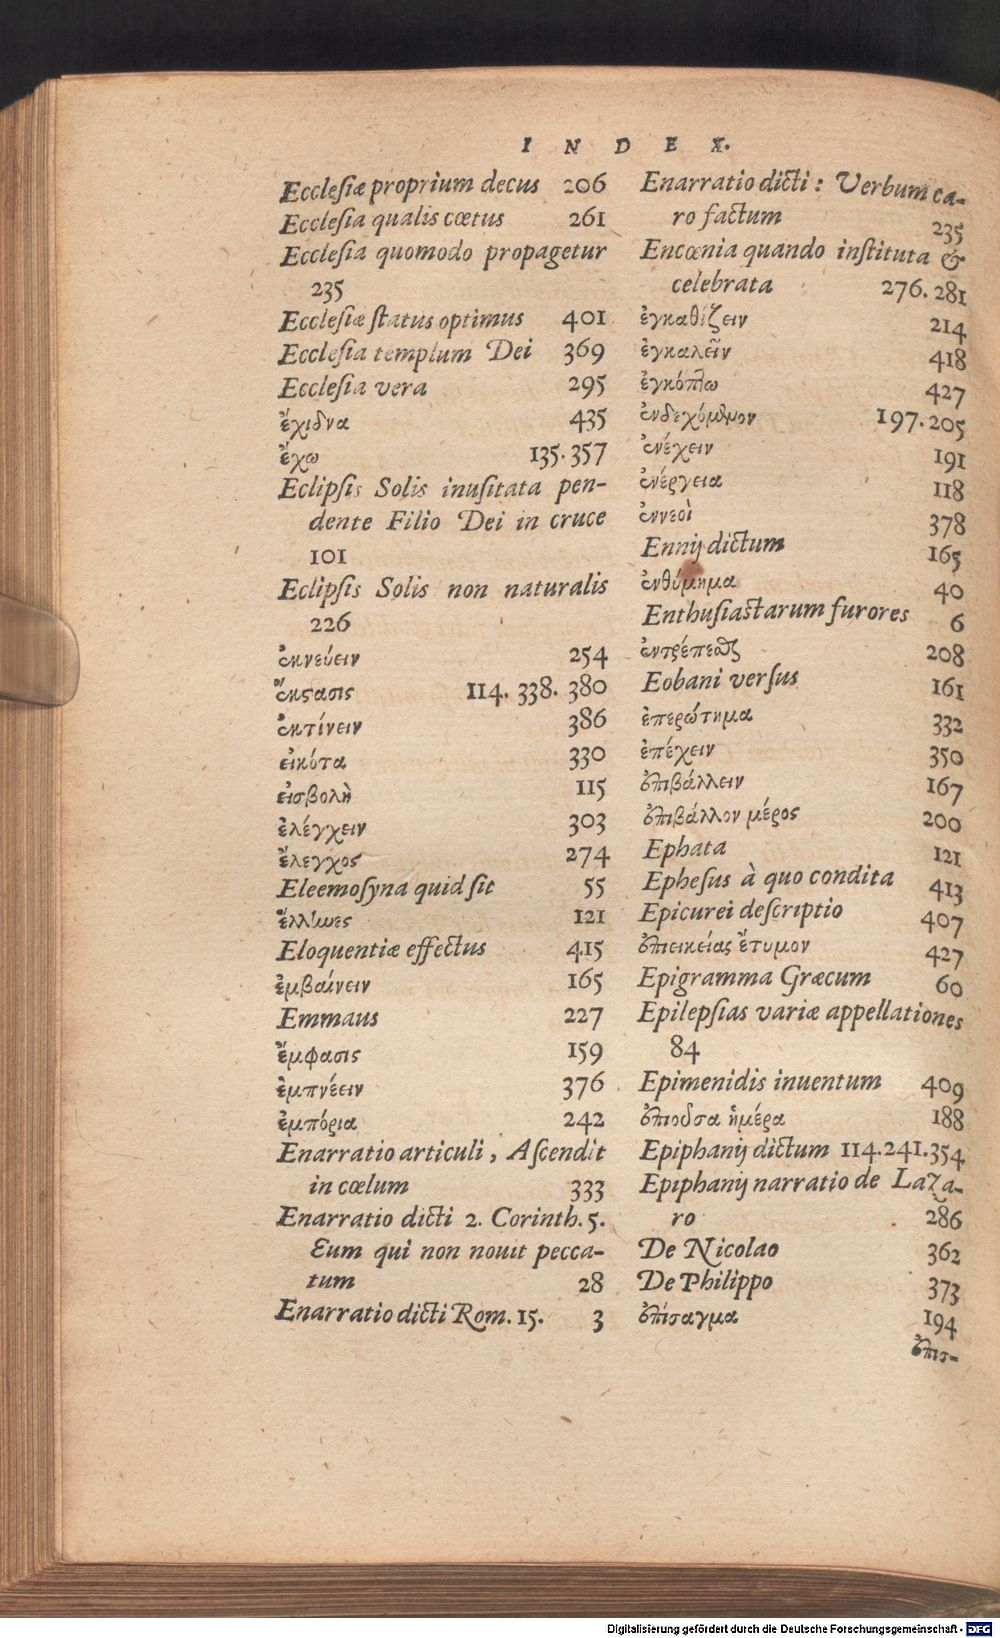 INDEX.
Ecclesiæ proprium decus 206
Ecclesia qualis cœtus 261
Ecclesia quomodo propagetur
235
Ecclesiæ status optimus 401
Ecclesia templum Dei 369
Ecclesia vera 295
ἔχιδνα 435
ἔχω 135. 357
Eclipsis Solis inusitata pen-
dente Filio Dei in cruce
101
Eclipsis Solis non naturalis
226
ἐκνεύειν 254
ἔκςασις 114. 338. 380
ἐκτίνειν 386
εἰκότα 330
εἰσβολὴ 115
ἐλέγχειν 303
ἔλεγχος 274
Eleemosyna quid sit 55
ἕλληνες 121
Eloquentiæ effectus 415
ἐμβαίνειν 165
Emmaus 227
ἔμφασις 159
ἐμπνέειν 376
ἐμπόρια 242
Enarratio articuli, Ascendit
in cœlum 333
Enarratio dicti 2. Corinth. 5.
Eum qui non nouit pecca-
tum 28
Enarratio dicti Rom. 15. 3
Enarratio dicti: Verbum ca-
ro factum 235
Encœnia quando instituta &
celebrata 276. 281
ἐγκαθίζειν 214
ἐγκαλεῖν 418
ἐγκόπτω 427
ἐνδεχόμενον 197. 205
ἐνέχειν 191
ἐνέργεια 118
ἐννεοὶ 378
Ennij dictum 165
ἐνθύμημα 40
Enthusiastarum furores 6
ἐντρέπεσθαι 208
Eobani versus 161
ἐπερώτημα 332
ἐπέχειν 350
ἐπιβάλλειν 167
ἐπιβάλλον μέρος 200
Ephata 121
Ephesus à quo condita 413
Epicurei descriptio 407
ἐπιεικείας ἔτυμον 427
Epigramma Græcum 60
Epilepsias variæ appellationes
84
Epimenidis inuentum 409
ἐπιοῦσα ἡμέρα 188
Epiphanij dictum 114. 241. 354
Epiphanij narratio de Laza-
ro 286
De Nicolao 362
De Philippo 373
ἐπίσαγμα 194
ἐπισ-
Digitalisierung gefördert durch die Deutsche Forschungsgemeinschaft - DFG